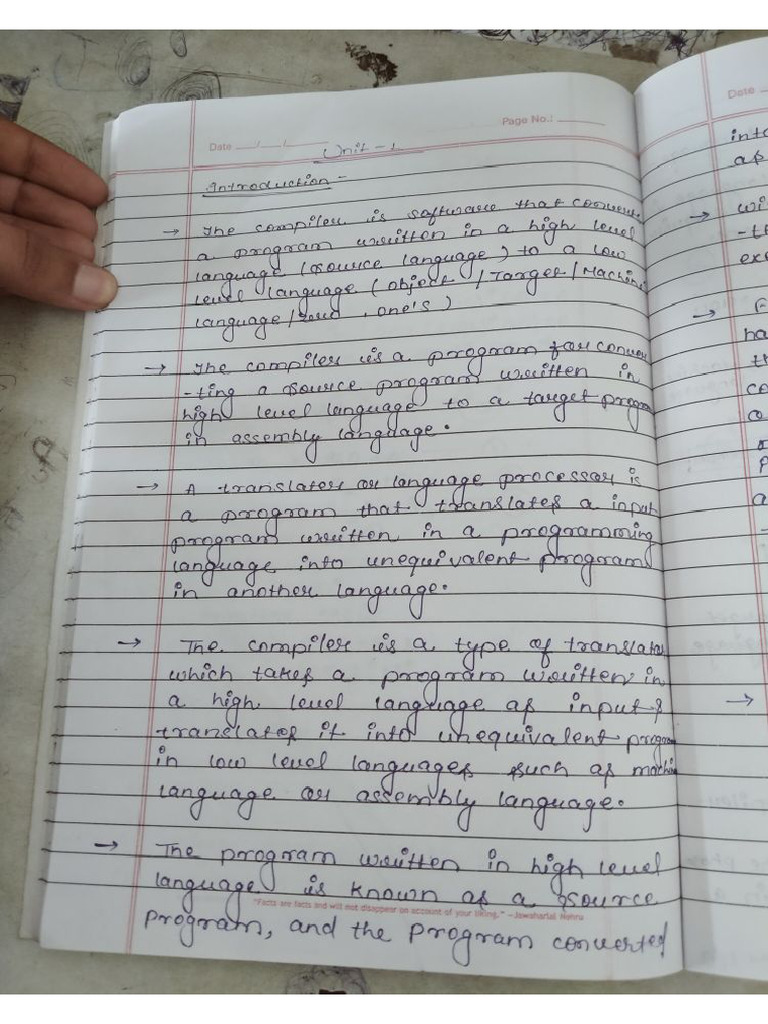 Date ___/___/___
Page No.: ________
Unit - 1
Introduction -
→ The compiler is software that converts
a program written in a high level
language (source language) to a low
level language (object / Target / Machine
language / zero, one's)
→ The compiler is a program for conver
-ting a source program written in
high level language to a target program
in assembly language.
→ A translator or language processor is
a program that translates a input
program written in a programming
language into unequivalent program
in another language.
→ The compiler is a type of translator
which takes a program written in
a high level language as input &
translates it into unequivalent program
in low level languages such as machin
language or assembly language.
→ The program written in high level
language is known as a source
"Facts are facts and will not disappear on account of your liking." ~Jawaharlal Nehru
program, and the program converted
Date
into
as
→ wi
-t
exe
→ F
ha
th
co
a
P
a
→